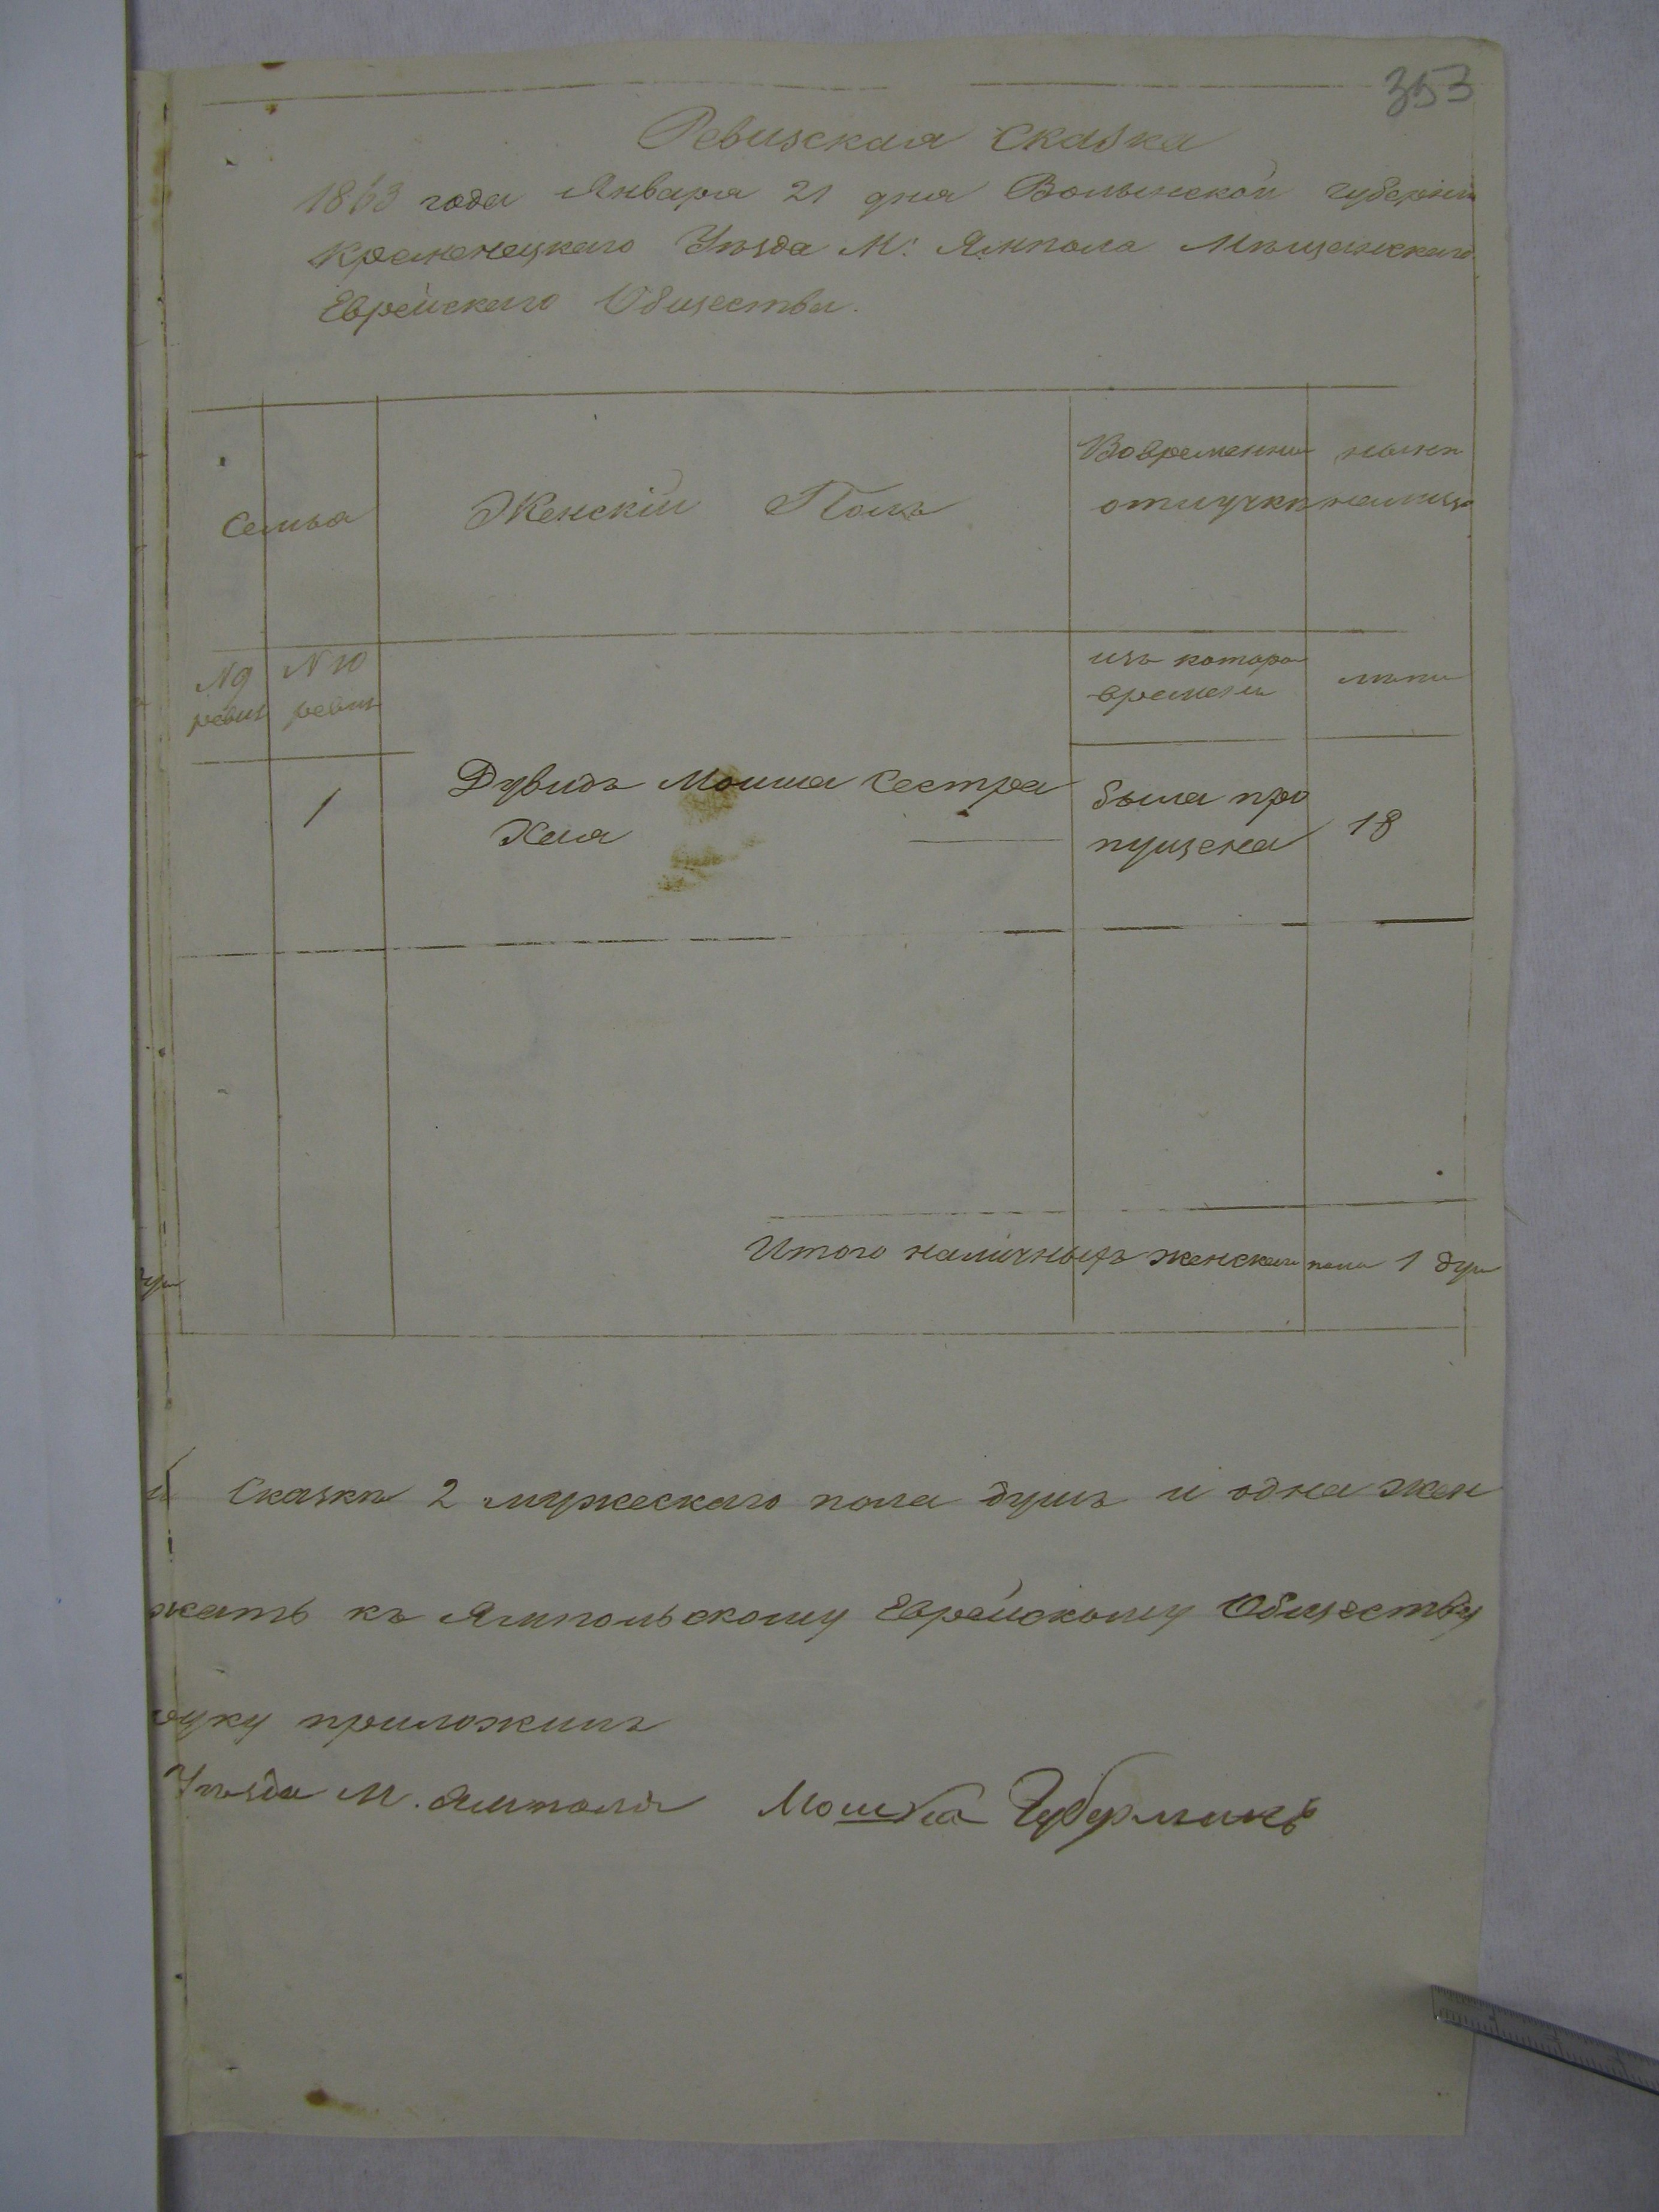 353
Ревизская Сказка
1863 года Января 21 дня Волынской губерніи
Кременецкаго Уѣзда М: Ямпола Мѣщанскаго
Еврейскаго Общества.
Семья
Женскій Полъ
Вовременни отлучкѣ
нынѣ налицо
N 9 ревиз
N 10 ревиз
изъ которо времени
лѣта
1
Дувидъ Мошка Сестра
Хая
была про
пущена
18
Итого наличныхъ женскаго пола 1 душ
Сказкѣ 2 мужескаго пола душъ и одна жен
жать къ Ямпольскому Еврейскому Обществу
руку приложилъ
Уѣзда М. Ямполя Мошка